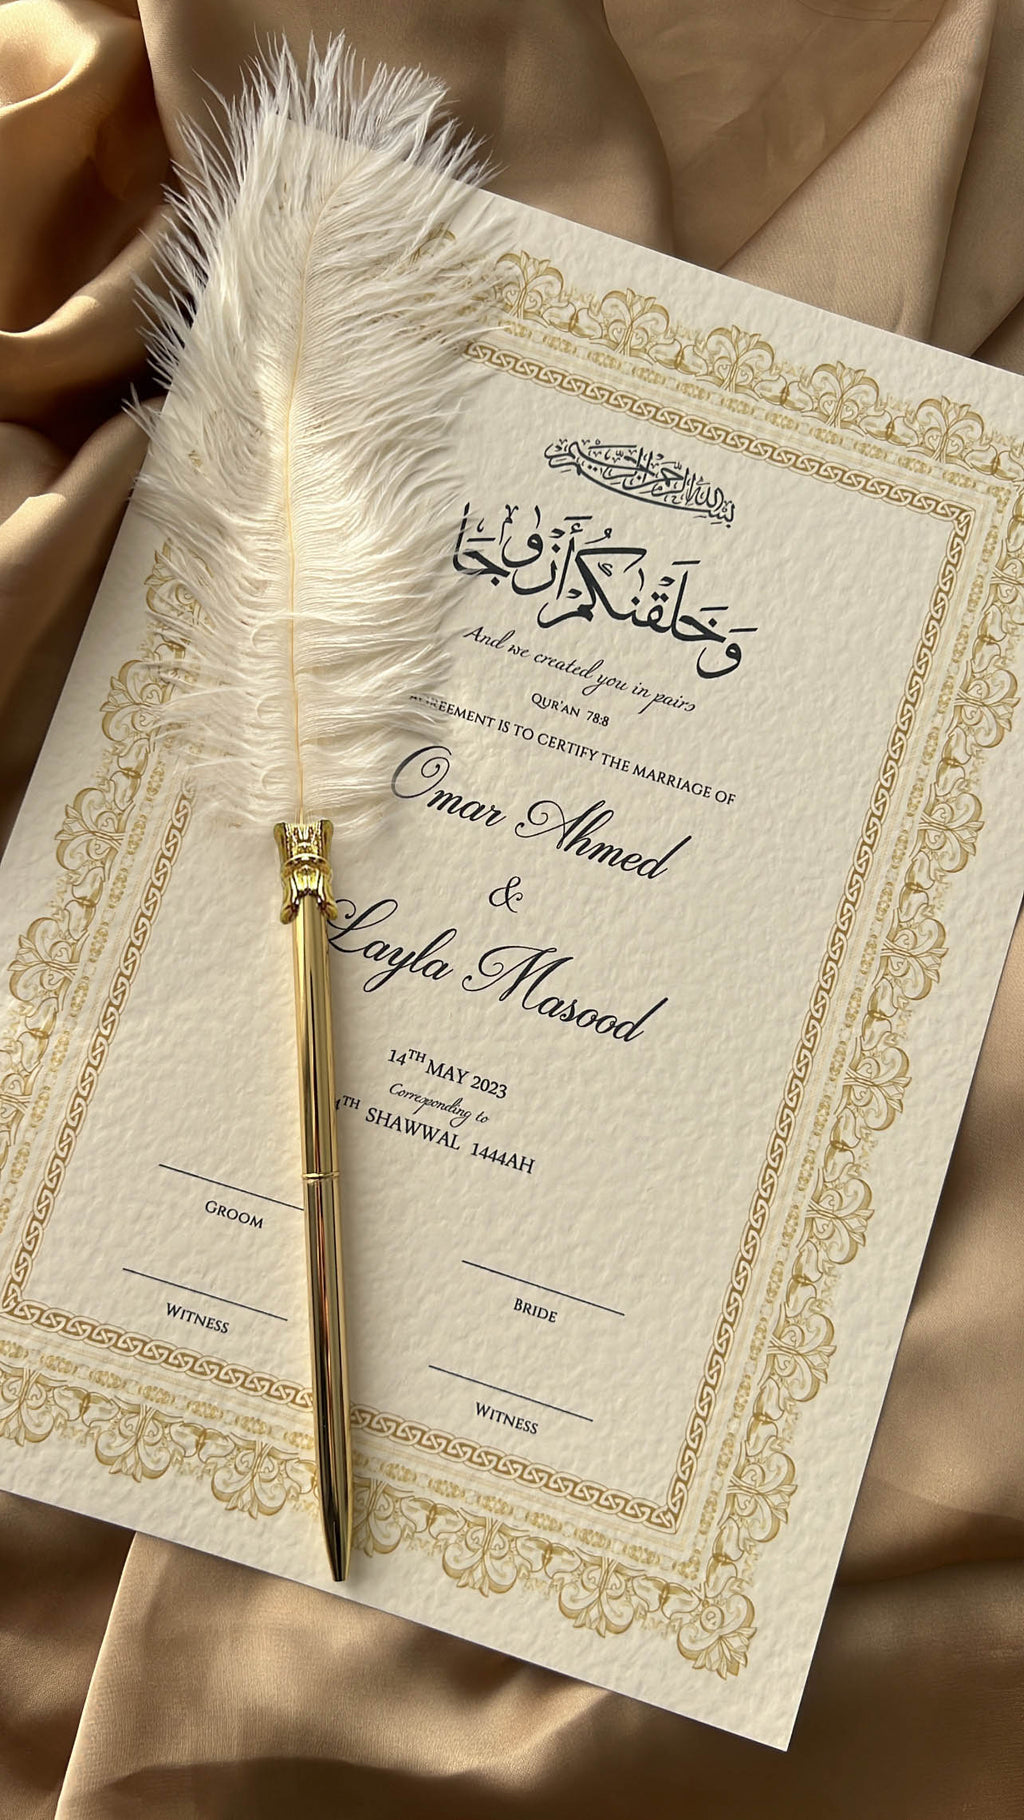 بسم الله الرحمن الرحيم
وَخَلَقْنَٰكُمْ أَزْوَٰجًا
And we created you in pairs
QUR'AN 78:8
AGREEMENT IS TO CERTIFY THE MARRIAGE OF
Omar Ahmed
&
Layla Masood
14TH MAY 2023
Corresponding to
TH SHAWWAL 1444AH
GROOM
BRIDE
WITNESS
WITNESS